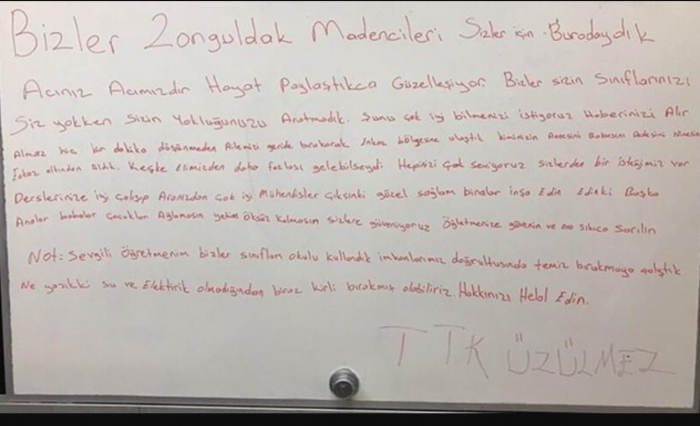 Bizler Zonguldak Madencileri Sizler için Buradaydık
Acınız Acımızdır Hayat Paylaştıkca Güzelleşiyor. Bizler sizin Sınıflarınızı
Siz yokken Sizin Yokluğunuzu Aratmadık. Şunu çok iyi bilmenizi istiyoruz Haberinizi Alır
Almaz hiç bir dakika düşünmeden Ailemizi geride bırakarak Enkaz bölgesine ulaştık kiminizin Annesini Babasını Dedesini
Enkaz altından Aldık. Keşke Elimizden daha fazlası gelebilseydi Hepinizi Çok seviyoruz sizlerden bir isteğimiz var
Derslerinize iyi çalışıp Aranızdan Çok iyi Mühendisler Çıksınki güzel sağlam binalar inşa Edin Edinki Başka
Analar babalar Çocuklar Ağlamasın yetim Öksüz Kalmasın Sizlere güveniyoruz Öğretmenize güvenin ve ona sıkıca Sarılın
Not: Sevgili Öğretmenim bizler sınıfları okulu kullandık imkanlarımız doğrultusunda temiz bırakmaya çalıştık
Ne yazıkki su ve Elektirik olmadığından biraz kirli bırakmış olabiliriz. Hakkınızı Helal Edin.
TTK ÜZÜLMEZ